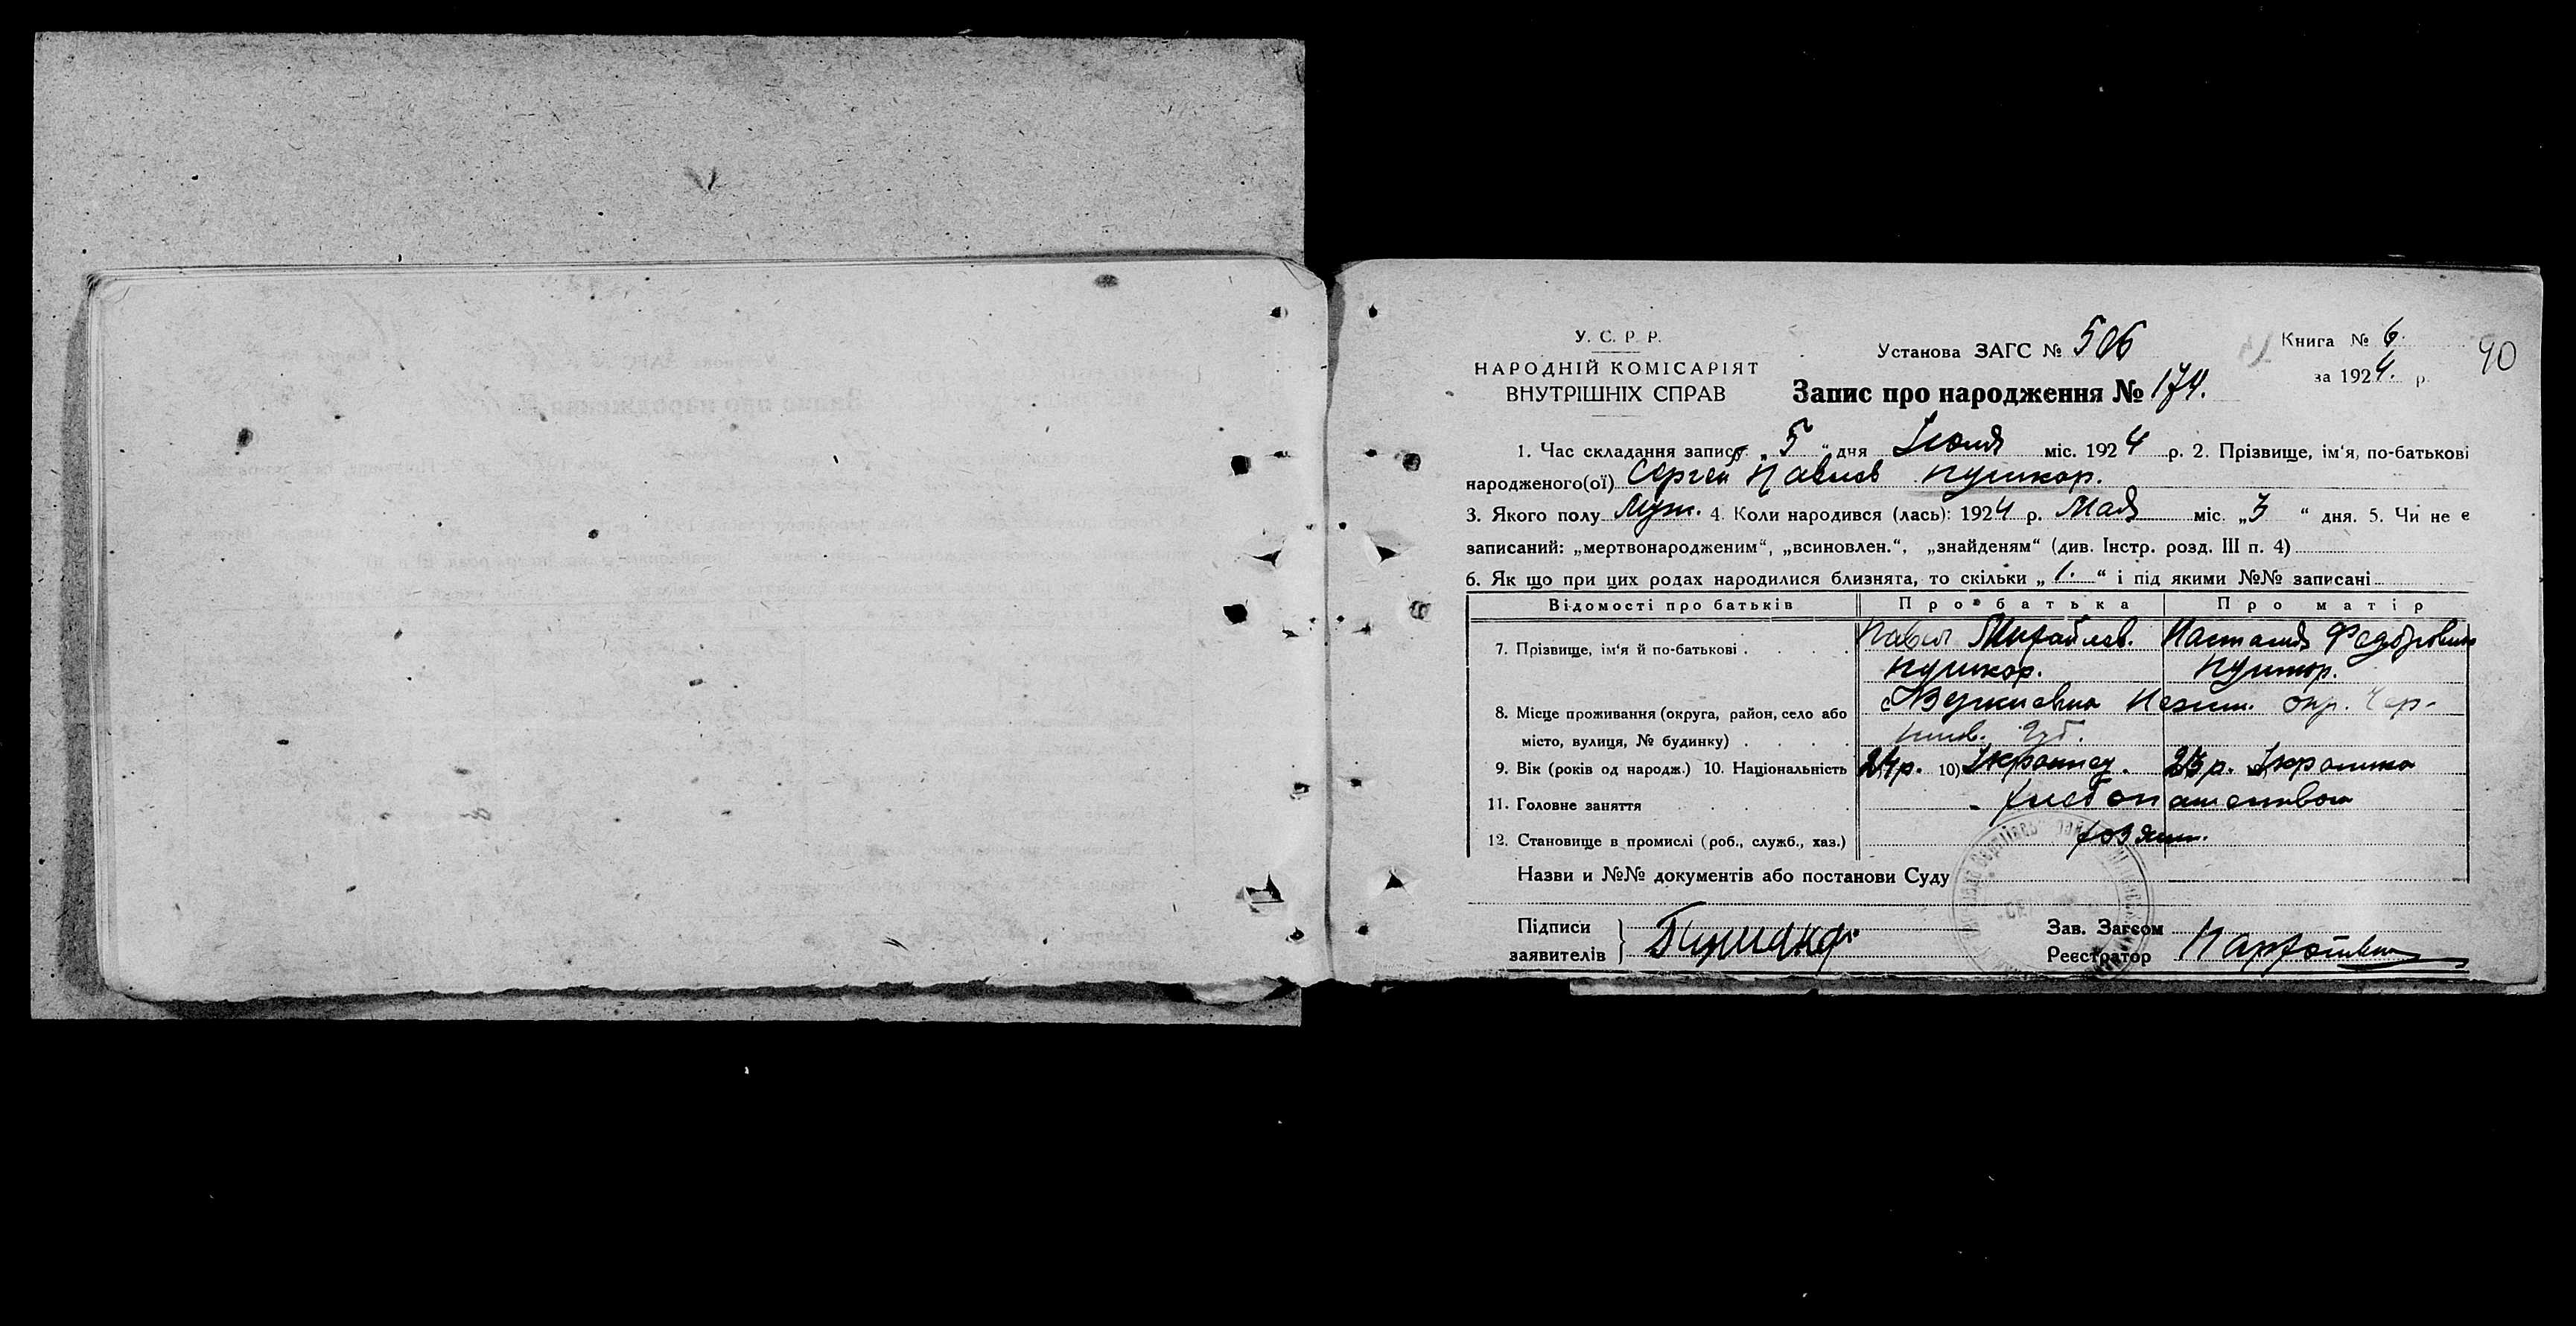 У. С. Р. Р.
НАРОДНІЙ КОМІСАРІЯТ
ВНУТРІШНІХ СПРАВ
Установа ЗАГС № 506
Запис про народження № 174.
Книга № 6.
за 1924. р.
90
1. Час складання запису „5“ дня Июля міс. 1924 р. 2. Прізвище, ім‘я, по-батькові
народженого(ої) Сергей Павлов Пушкар.
3. Якого полу Муж. 4. Коли народився (лась): 1924 р. Мая міс. „3“ дня. 5. Чи не є
записаний: „мертвонародженим“, „всиновлен.“, „знайденям“ (див. Інстр. розд. III п. 4)
6. Як що при цих родах народилися близнята, то скільки „1.“ і під якими №№ записані
Відомості про батьків Про батька Про матір
7. Прізвище, ім‘я й по-батькові Павел Михайлов. Настасия Федоровна
Пушкар. Пушкар.
8. Місце проживання (округа, район, село або Нежин. окр. Чер-
місто, вулиця, № будинку) ниг. Губ.
9. Вік (років од народж.) 10. Національність 24 р. 10) Украинец. 23 р. Украинка
11. Головне заняття хлебопашество
12. Становище в промислі (роб., служб., хаз.) хозяин.
Назви и №№ документів або постанови Суду
Підписи
заявителів Пушкар
Зав. Загсом
Реєстратор